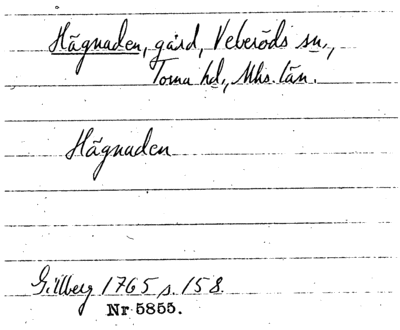 Hägnaden, gård, Veberöds sn.,
Torna hd., Mhs. län.
Hägnaden
Gillberg 1765 s. 158.
Nr 5855.